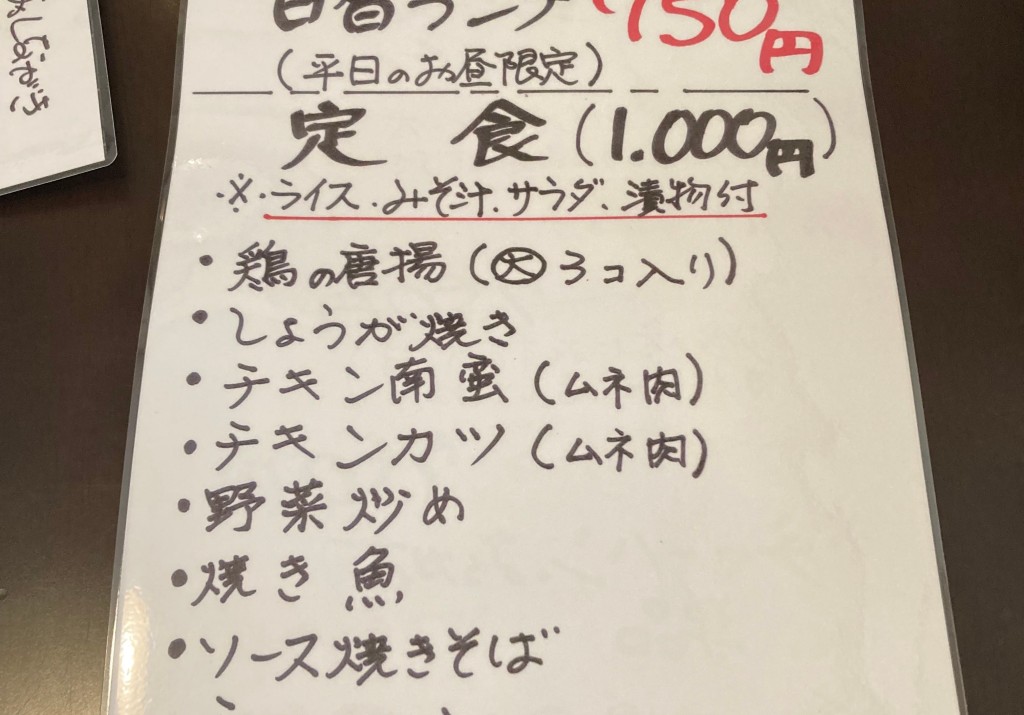 日替ランチ 750円
(平日のお昼限定)
定食(1.000円)
※・ライス・みそ汁・サラダ・漬物付
・鶏の唐揚(大3コ入り)
・しょうが焼き
・チキン南蛮(ムネ肉)
・チキンカツ(ムネ肉)
・野菜炒め
・焼き魚
・ソース焼きそば
おしながき